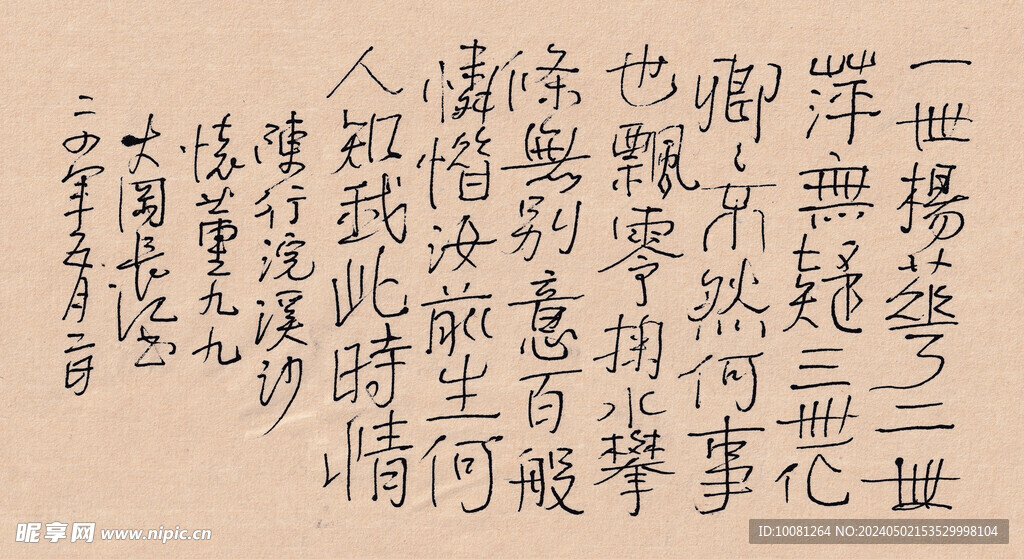 一世楊華二世
萍無疑三世化
卿〻不然何事
也飄零掬水攀
條無別意百般
憐惜汝前生何
人知我此時情
陳行浣溪沙
懷董九九
大岡長江书
二四年五月二日
昵享网 www.nipic.cn
ID:10081264 NO:20240502153529998104